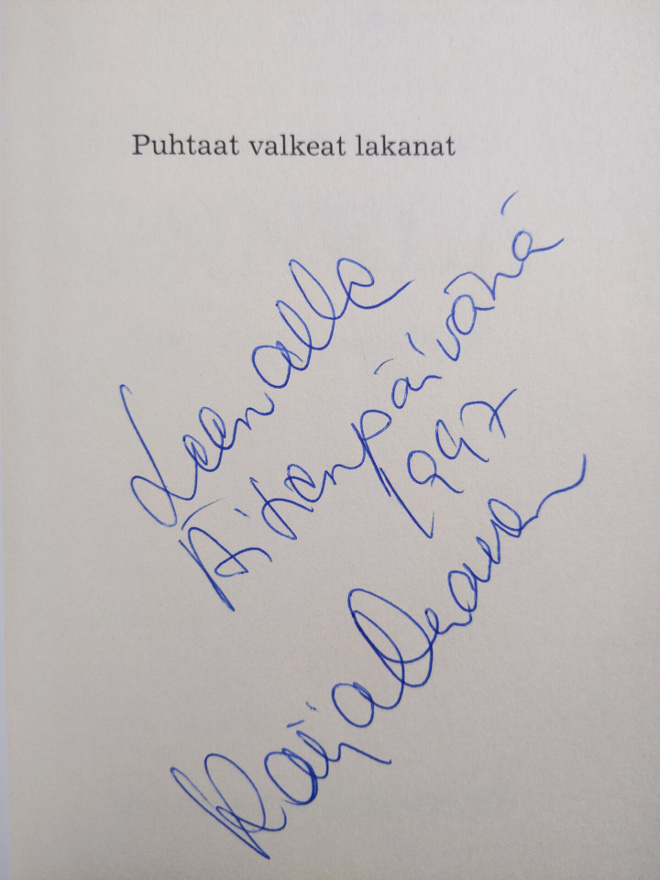 Puhtaat valkeat lakanat
Leenalle
Äitienpäivänä
1997
Raija Oranen